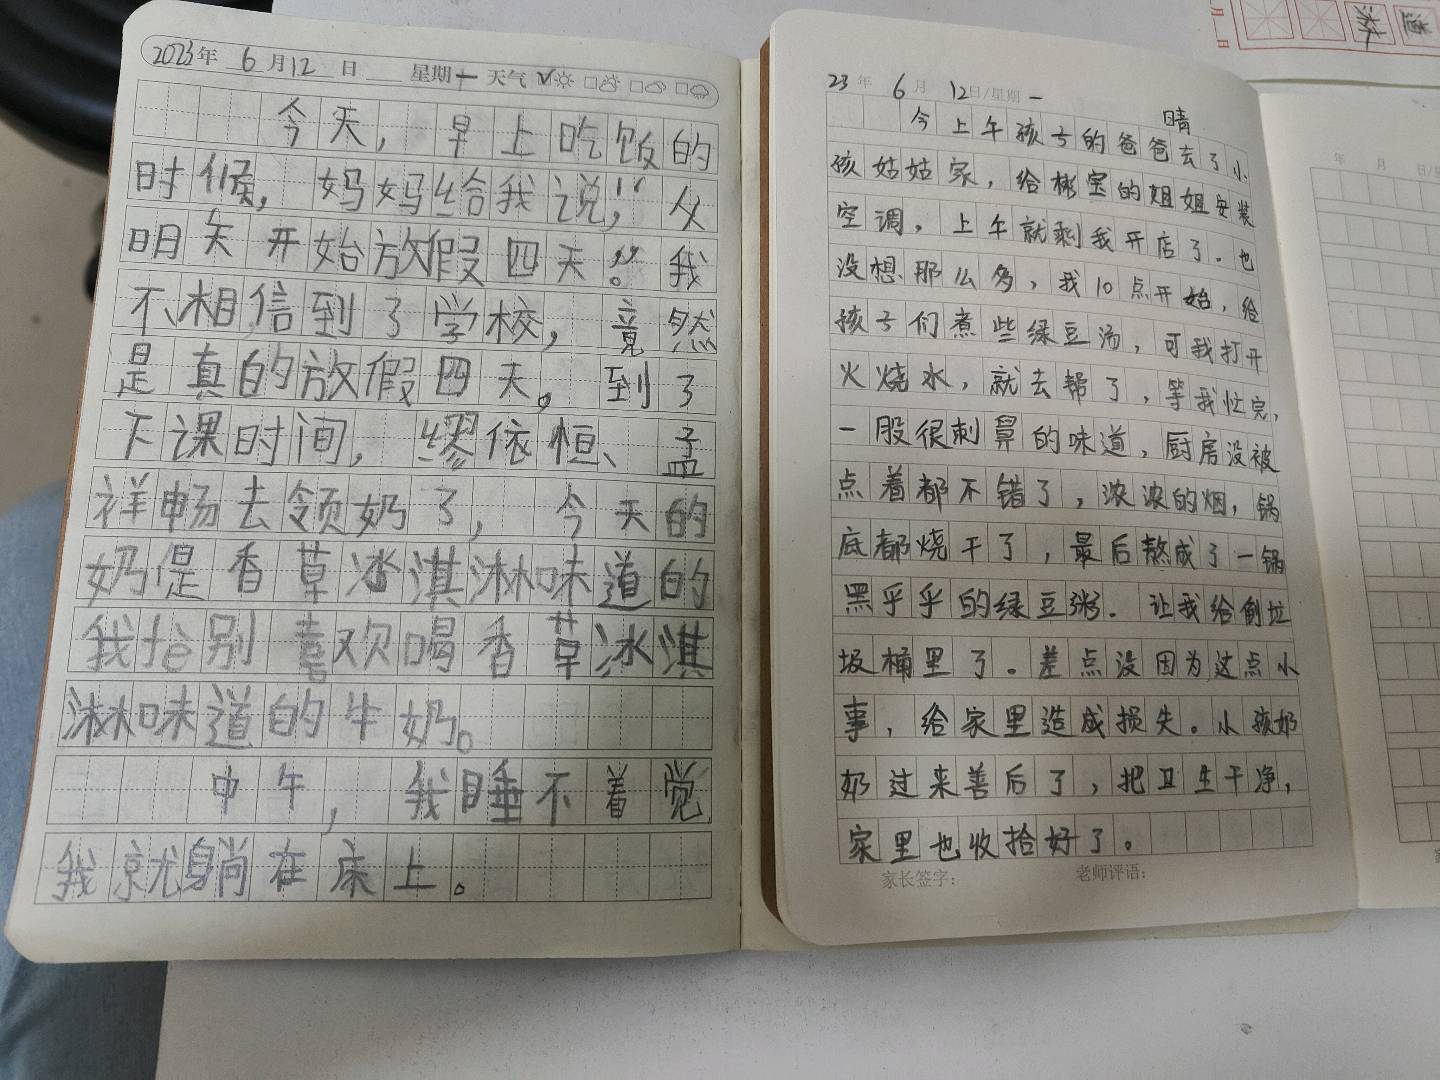 2023年 6月12日 星期一 天气
今天，早上吃饭的
时候，妈妈给我说，“从
明天开始放假四天。”我
不相信到了学校，竟然
是真的放假四天。到了
下课时间，缪依恒、孟
祥畅去领奶了，今天的
奶是香草冰淇淋味道的
我抢别喜欢喝香草冰淇
淋味道的牛奶。
中午，我睡不着觉，
我就躺在床上。
23年 6月 12日/星期一
晴
今上午孩子的爸爸去了小
孩姑姑家，给彬宝的姐姐安装
空调，上午就剩我开店了。也
没想那么多，我10点开始，给
孩子们煮些绿豆汤，可我打开
火烧水，就去帮了，等我忙完，
一股很刺鼻的味道，厨房没被
点着都不错了，浓浓的烟，锅
底都烧干了，最后熬成了一锅
黑乎乎的绿豆粥. 让我给倒垃
圾桶里了。差点没因为这点小
事，给家里造成损失。小孩奶
奶过来善后了，把卫生干净，
家里也收拾好了。
家长签字： 老师评语：
年 月 日/
月
日